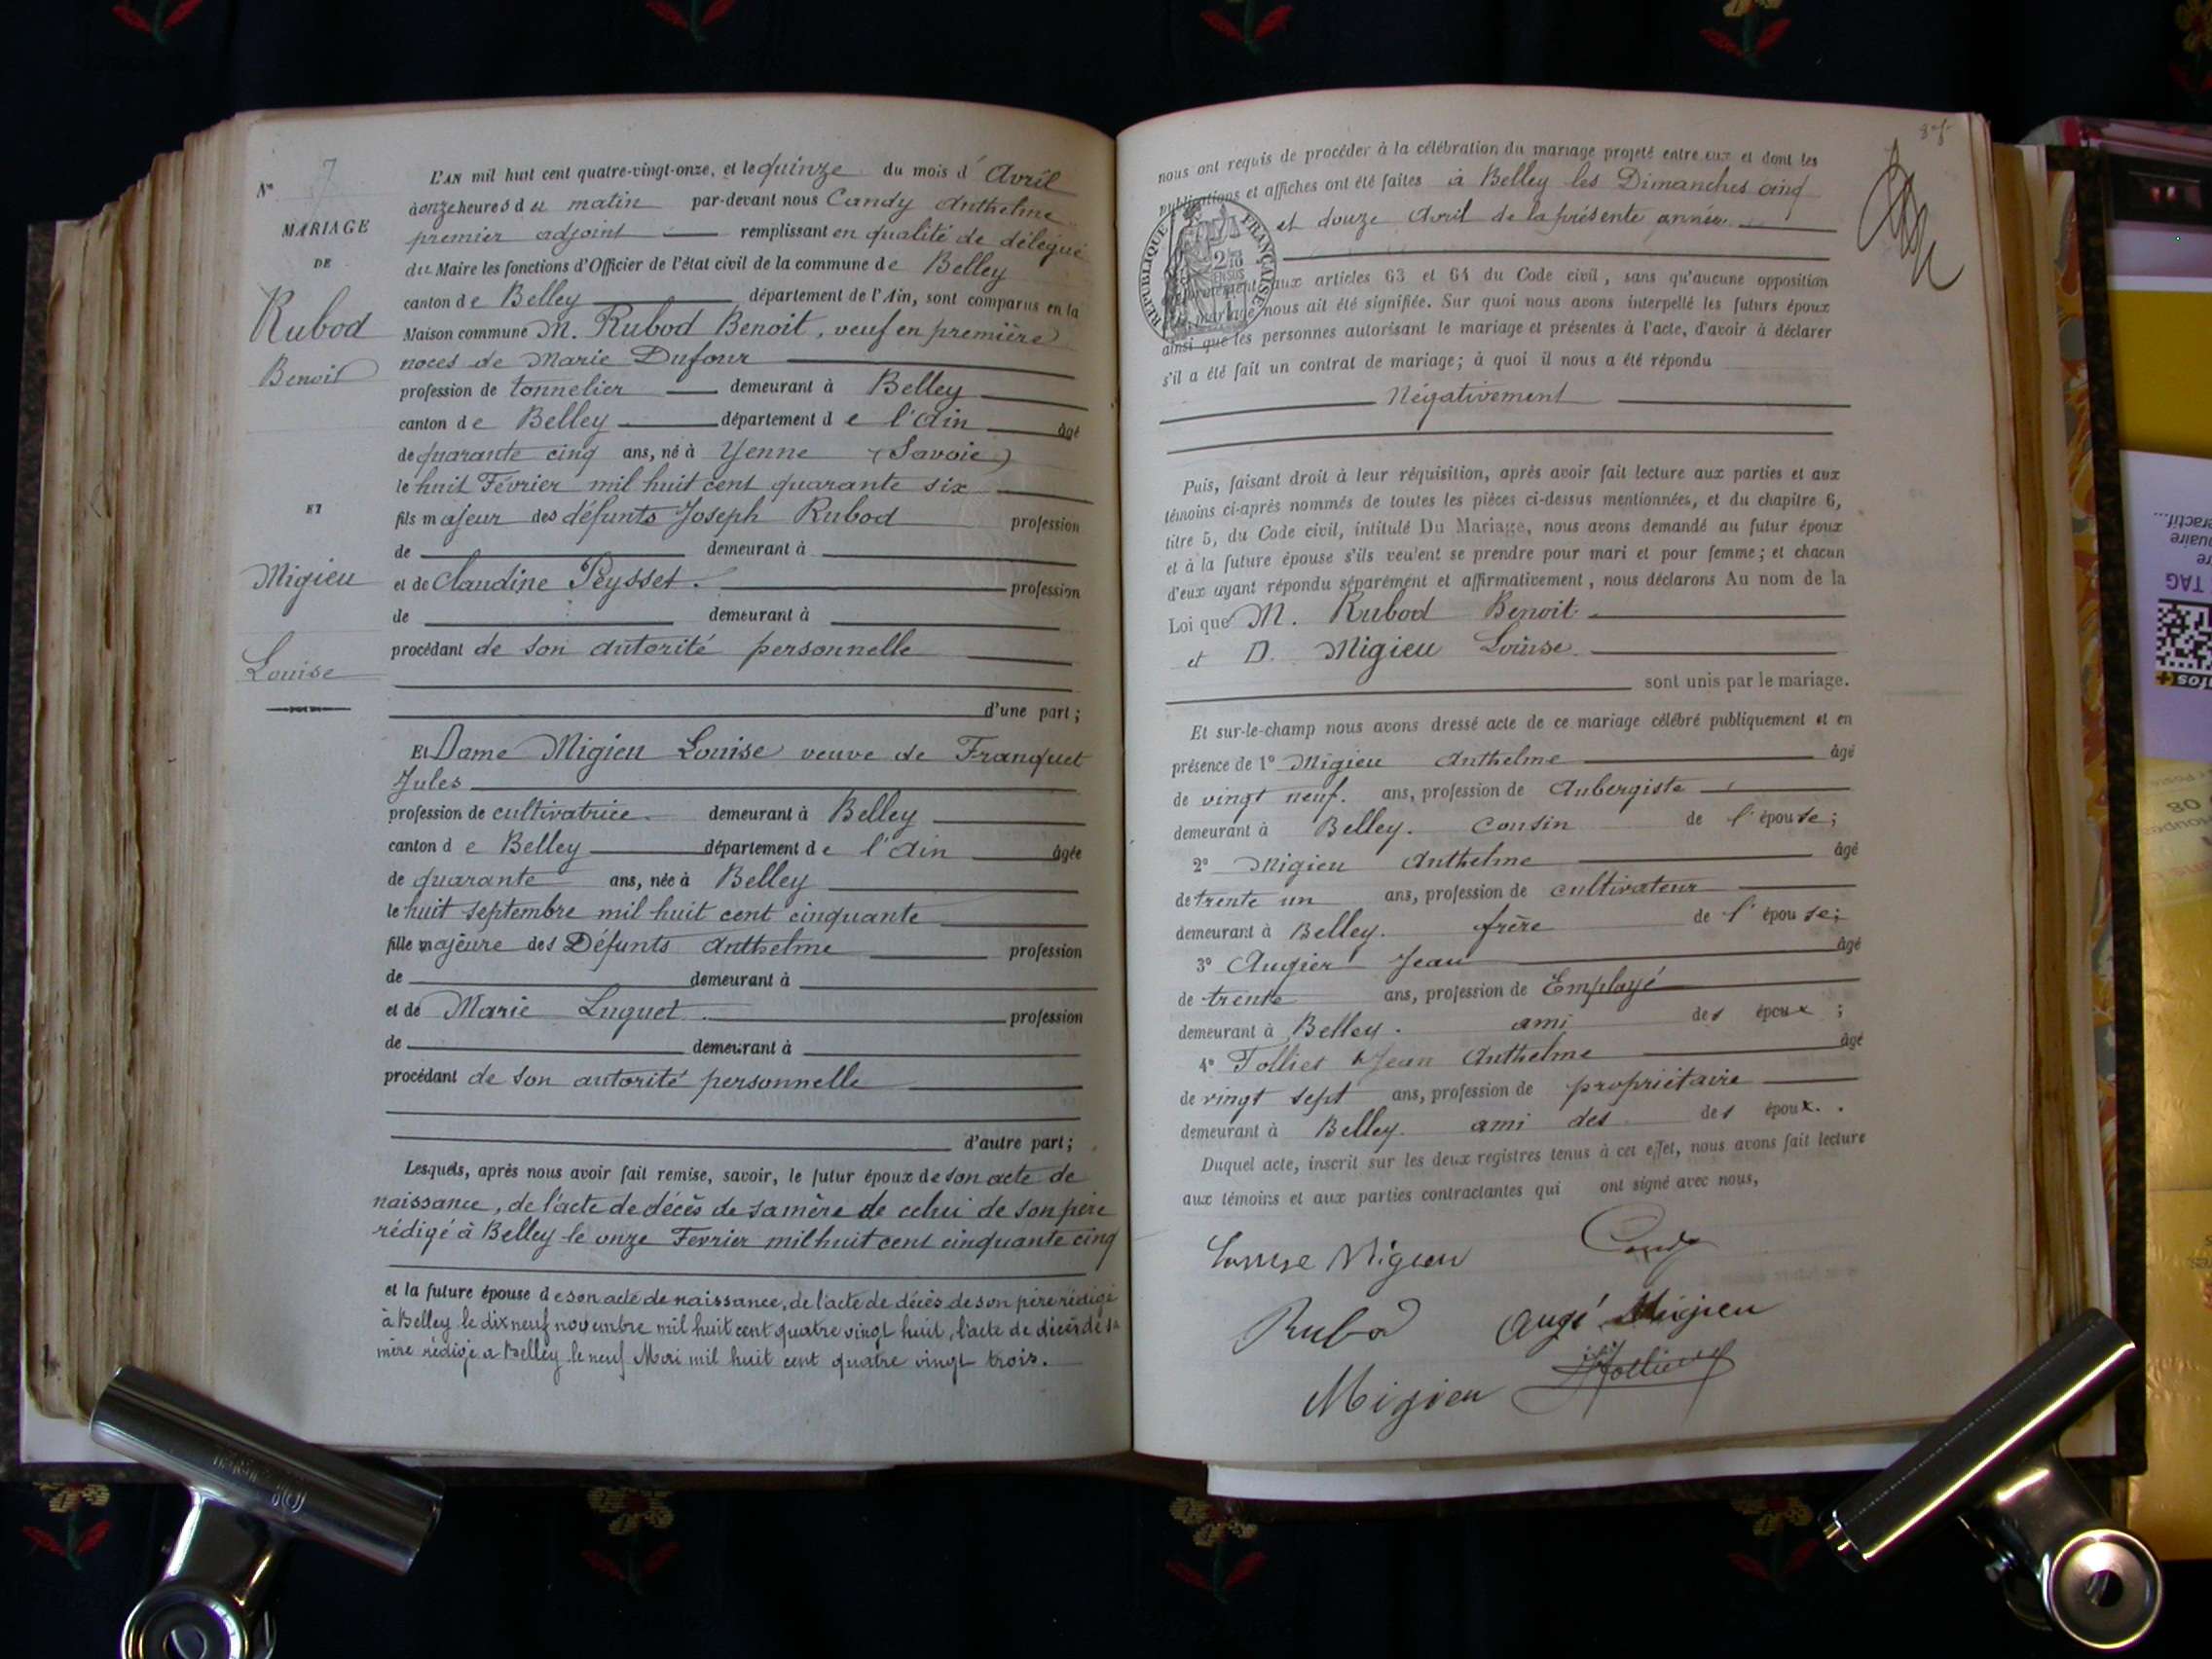 N° 7
MARIAGE
DE
Rubod
Benoit
ET
Migieu
Louise
L'AN mil huit cent quatre-vingt-onze, et le quinze du mois d' Avril
à onze heures du matin par-devant nous Candy Anthelme
premier adjoint remplissant en qualité de délégué
du Maire les fonctions d'Officier de l'état civil de la commune de Belley
canton de Belley département de l'Ain, sont comparus en la
Maison commune M. Rubod Benoit, veuf en première
noces de Marie Dufour
profession de tonnelier demeurant à Belley
canton de Belley département de l'Ain âgé
de quarante cinq ans, né à Yenne (Savoie)
le huit Février mil huit cent quarante six
fils majeur des défunts Joseph Rubod profession
de demeurant à
et de Claudine Peysset. profession
de demeurant à
procédant de son autorité personnelle
d'une part;
Et Dame Migieu Louise veuve de Franquet
Jules
profession de cultivatrice. demeurant à Belley
canton de Belley département de l'Ain âgée
de quarante ans, née à Belley
le huit septembre mil huit cent cinquante
fille majeure des Défunts Anthelme profession
de demeurant à
et de Marie Luquet. profession
de demeurant à
procédant de son autorité personnelle
d'autre part;
Lesquels, après nous avoir fait remise, savoir, le futur époux de son acte de
naissance, de l'acte de décès de sa mère de celui de son père
rédigé à Belley le onze Fevrier mil huit cent cinquante cinq
et la future épouse de son acte de naissance, de l'acte de décès de son père rédigé
à Belley le dix neuf novembre mil huit cent quatre vingt huit, l'acte de décès de sa
mère rédigé a Belley le neuf Mai mil huit cent quatre vingt trois.
nous ont requis de procéder à la célébration du mariage projeté entre eux et dont les
publications et affiches ont été faites à Belley les Dimanches cinq
et douze Avril de la présente année.
RÉPUBLIQUE FRANÇAISE
2/10 EN SUS
conformément aux articles 63 et 64 du Code civil, sans qu'aucune opposition
mariage nous ait été signifiée. Sur quoi nous avons interpellé les futurs époux
ainsi que les personnes autorisant le mariage et présentes à l'acte, d'avoir à déclarer
s'il a été fait un contrat de mariage; à quoi il nous a été répondu
Négativement
Puis, faisant droit à leur réquisition, après avoir fait lecture aux parties et aux
témoins ci-après nommés de toutes les pièces ci-dessus mentionnées, et du chapitre 6,
titre 5, du Code civil, intitulé Du Mariage, nous avons demandé au futur époux
et à la future épouse s'ils veulent se prendre pour mari et pour femme; et chacun
d'eux ayant répondu séparément et affirmativement, nous déclarons Au nom de la
Loi que M. Rubod Benoit.
et D. Migieu Louise
sont unis par le mariage.
Et sur-le-champ nous avons dressé acte de ce mariage célébré publiquement et en
présence de 1° Migieu Anthelme âgé
de vingt neuf. ans, profession de Aubergiste
demeurant à Belley. cousin de l'épouse;
2° Migieu Anthelme âgé
de trente un ans, profession de cultivateur
demeurant à Belley. frère de l'épouse;
3° Augier Jean âgé
de trente ans, profession de Employé
demeurant à Belley. ami des époux;
4° Tollier Jean Anthelme âgé
de vingt sept ans, profession de propriétaire
demeurant à Belley. ami des des époux.
Duquel acte, inscrit sur les deux registres tenus à cet effet, nous avons fait lecture
aux témoins et aux parties contractantes qui ont signé avec nous,
Louise Migieu Candy
Rubod Augé Migieu
Migieu JTollier
TAG